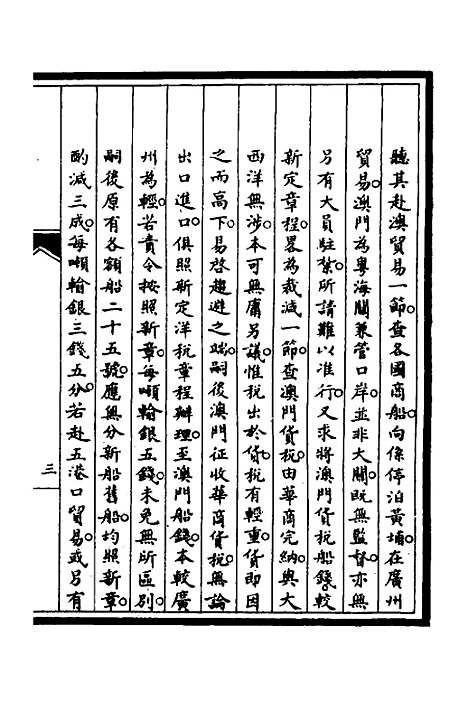 聽其赴澳貿易一節。查各國商船。向係停泊黃埔。在廣州
貿易。澳門為粵海關兼管口岸。並非大關。既無監督。亦無
另有大員駐紮。所請難以准行。又求將澳門貨稅船鈔。較
新定章程。畧為裁減一節。查澳門貨稅。由華商完納。與大
西洋無涉。本可無庸另議。惟稅出於貨。稅有輕重。貨即因
之而高下。易啓趨避之端。嗣後澳門征收華商貨稅。無論
出口進口。俱照新定洋稅章程辦理。至澳門船鈔。本較廣
州為輕。若責令按照新章。每噸輸銀五錢。未免無所區別。
嗣後原有各額船二十五號。應無分新船舊船。均照新章。
酌減三成。每噸輸銀三錢五分。若赴五港口貿易。或另有
三